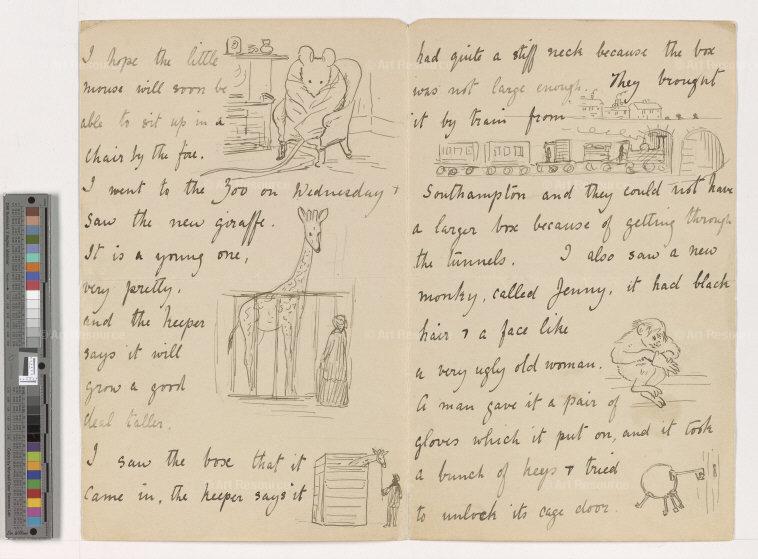 I hope the little
mouse will soon be
able to sit up in a
chair by the fire.
I went to the Zoo on Wednesday &
saw the new giraffe.
It is a young one,
very pretty,
and the keeper
says it will
grow a good
deal taller.
I saw the box that it
came in, the keeper says it
had quite a stiff neck because the box
was not large enough. They brought
it by train from
Southampton and they could not have
a larger box because of getting through
the tunnels. I also saw a new
monky, called Jenny, it had black
hair & a face like
a very ugly old woman.
A man gave it a pair of
gloves which it put on, and it took
a bunch of keys & tried
to unlock its cage door.
© Art Resource